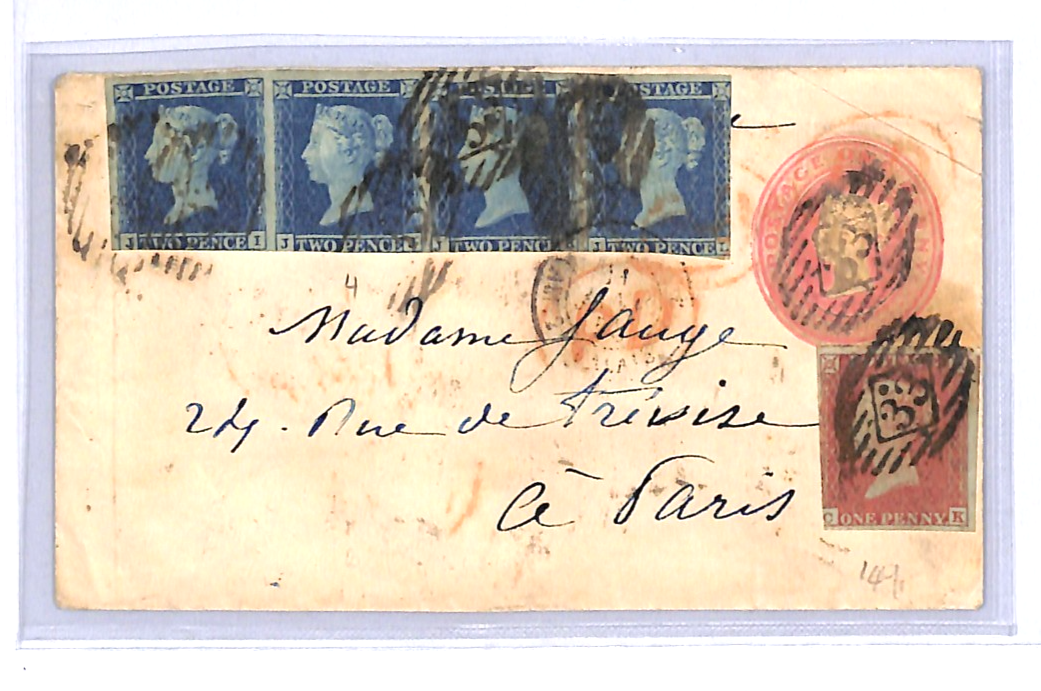 POSTAGE POSTAGE POSTAGE POSTAGE
J TWO PENCE I J TWO PENCE J TWO PENCE J TWO PENCE L
POSTAGE ONE PENNY
Madame Gauge
24. Rue de Trévise
à Paris
C ONE PENNY K
4